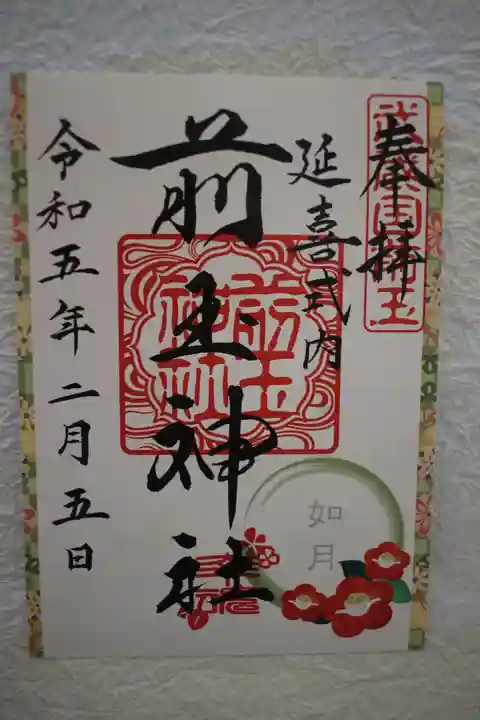 奉拝
延喜式内
前玉神社
前玉神社
如月
令和五年二月五日